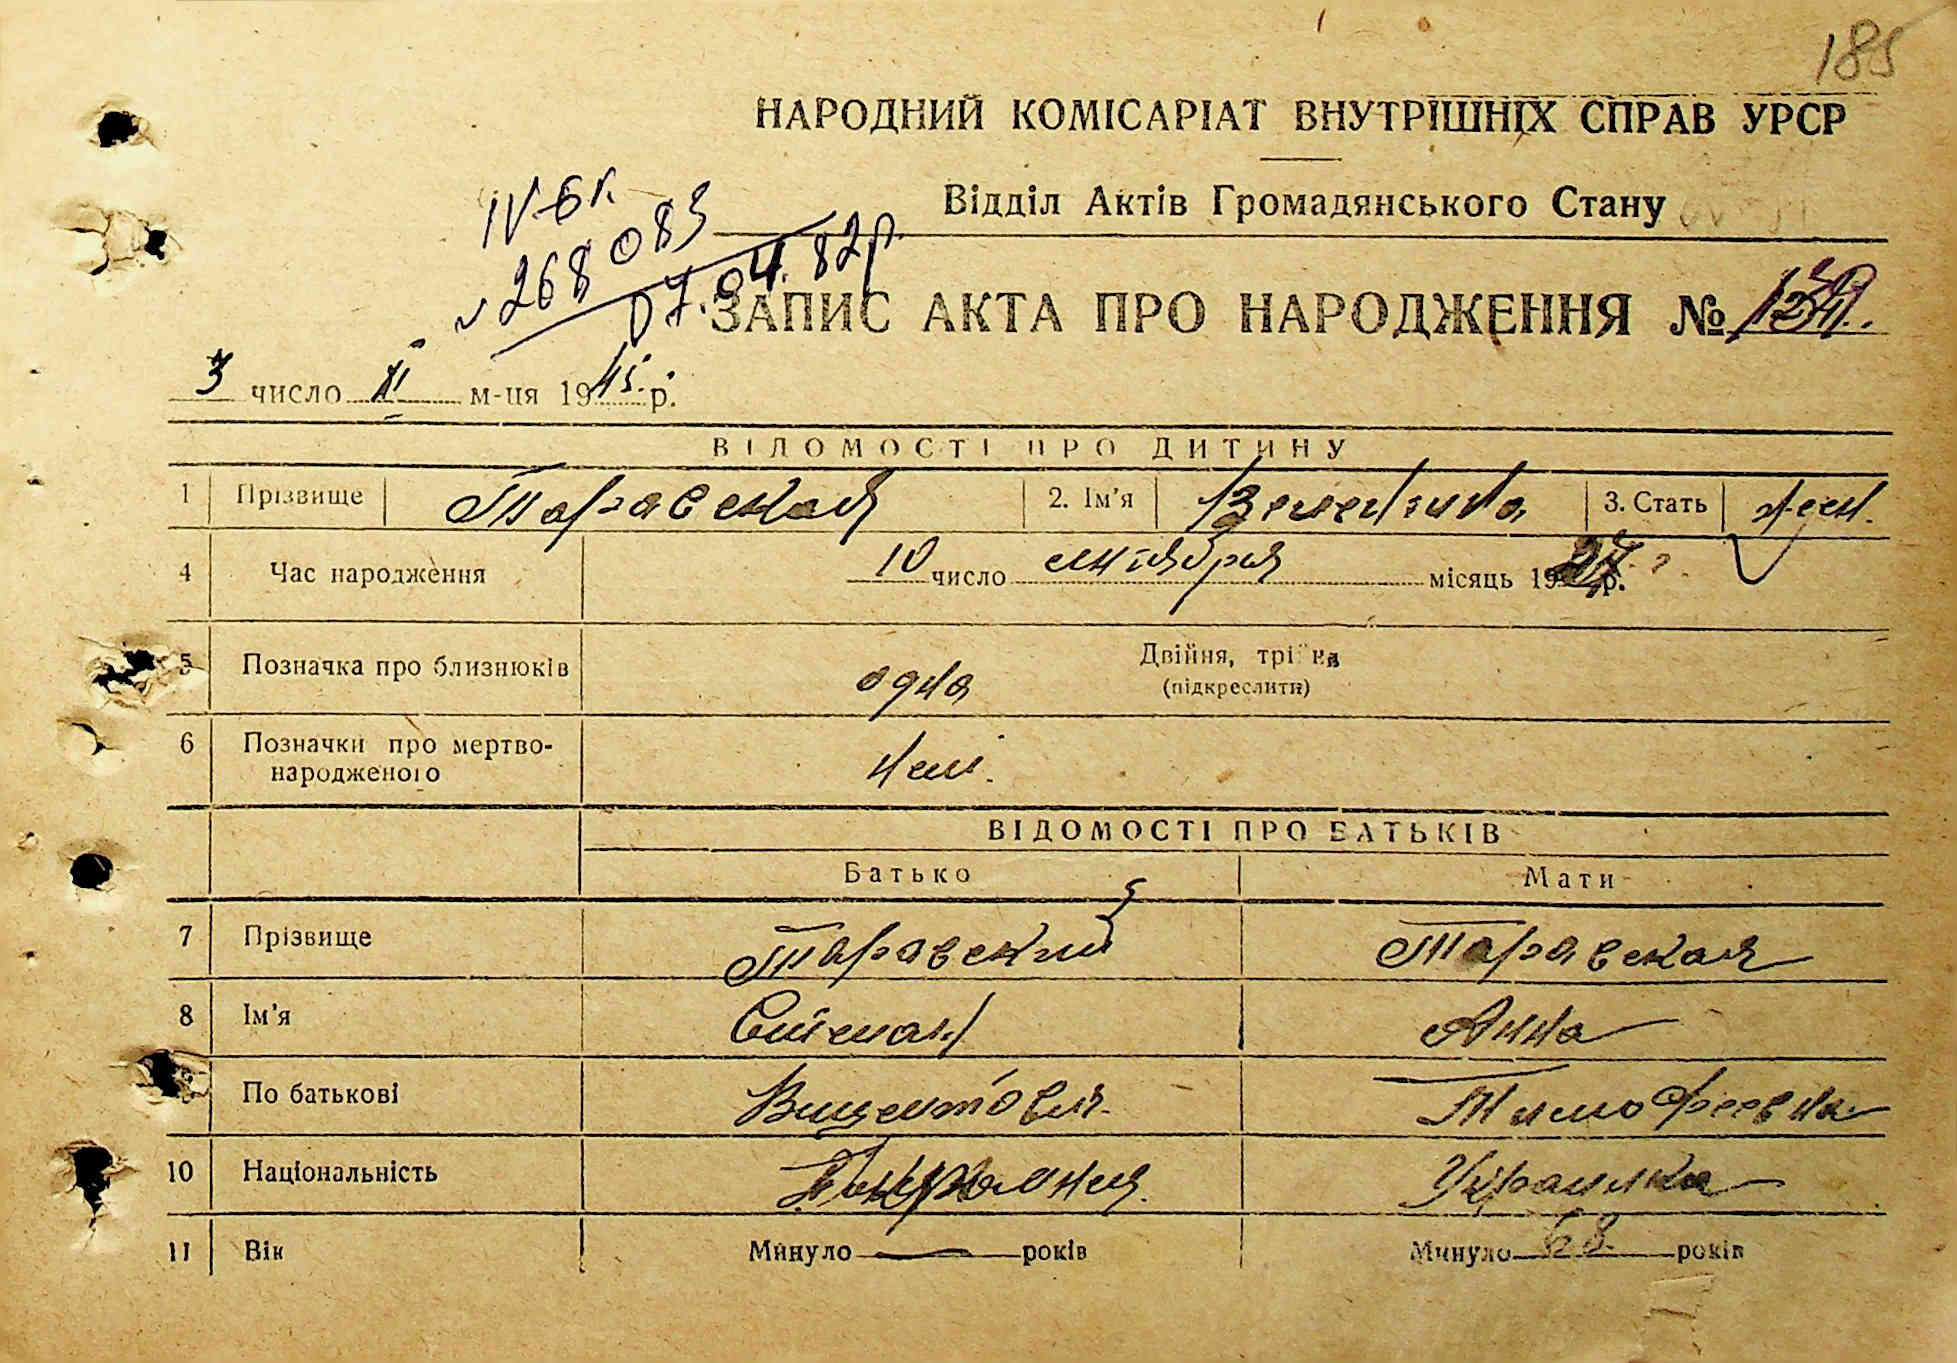 185
НАРОДНИЙ КОМІСАРІАТ ВНУТРІШНІХ СПРАВ УРСР
Відділ Актів Громадянського Стану
IV-БК
v 268083
07.04.82р.
ЗАПИС АКТА ПРО НАРОДЖЕННЯ №
3 число II м-ця 1945 р.
ВІДОМОСТІ ПРО ДИТИНУ
1 Прізвище Таравская 2. Ім'я Валентина 3. Стать жен.
4 Час народження 10 число октября місяць 1927 р.
5 Позначка про близнюків одна Двійня, трійня
(підкреслити)
6 Позначки про мертво-
народженого нет.
ВІДОМОСТІ ПРО БАТЬКІВ
Батько Мати
7 Прізвище Таравский Таравская
8 Ім'я Степан Анна
9 По батькові Вицентович Тимофеевна
10 Національність Украинка
11 Вік Минуло — років Минуло 68 років